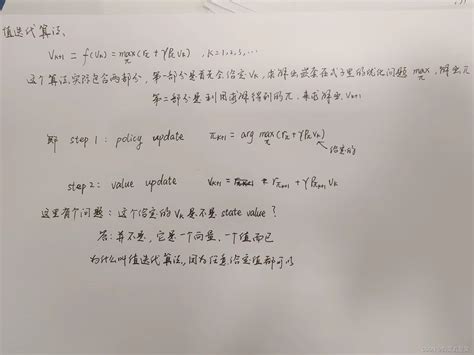 值迭代算法、
V_{k+1} = f(V_k) = max_π (r_π + γP_πV_k) , k=1,2,3,…
这个算法实际包含两部分，第一部分是首先会给定V_k，求解出嵌套在式子里的优化问题 max_π，解出π
第二部分是利用求解得到的π，来求解出V_{k+1}
即 step 1 : policy update π_{k+1} = arg max_π (r_π + γP_πV_k)
给定的
step 2 : value update V_{k+1} = r_{π_{k+1}} + γP_{π_{k+1}}V_k
这里有个问题：这个给定的V_k是不是state value？
答：并不是，它是一个向量，一个值而已
为什么叫值迭代算法，因为任意给定值都可以